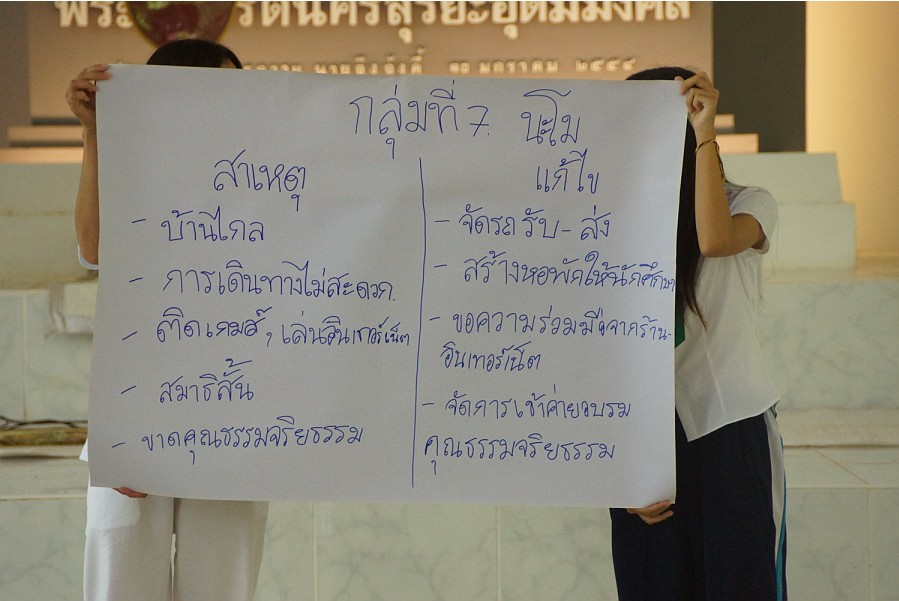 รัตนคีรีสุริยะอุดมมงคล
มกราคม ๒๕๕๕
กลุ่มที่ 7. นะโม
สาเหตุ
- บ้านไกล
- การเดินทางไม่สะดวก.
- ติดเกมส์, เล่นอินเทอร์เน็ต
- สมาธิสั้น
- ขาดคุณธรรมจริยธรรม
แก้ไข
- จัดรถ รับ - ส่ง
- สร้างหอพักให้นักศึกษา
- ขอความร่วมมือจากร้าน-
อินเทอร์เน็ต
- จัดการเข้าค่ายอบรม
คุณธรรมจริยธรรม